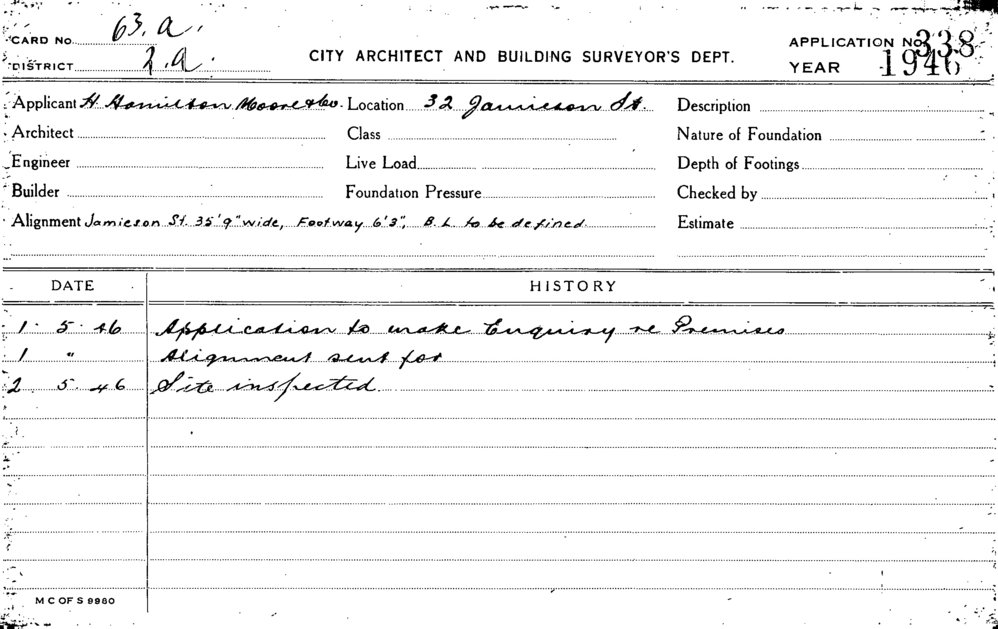 CARD No. 63. a.
DISTRICT 2. a.
CITY ARCHITECT AND BUILDING SURVEYOR'S DEPT.
APPLICATION No. 338
YEAR 1946
Applicant H. Hamilton Moore & Co. Location 32 Jamieson St. Description
Architect Class Nature of Foundation
Engineer Live Load Depth of Footings
Builder Foundation Pressure Checked by
Alignment Jamieson St. 35'9" wide, Footway 6'3", B.L. to be defined Estimate
DATE HISTORY
1. 5. 46 Application to make Enquiry re Premises
1 " Alignment sent for
2 5. 46 Site inspected
M C OF S 9980